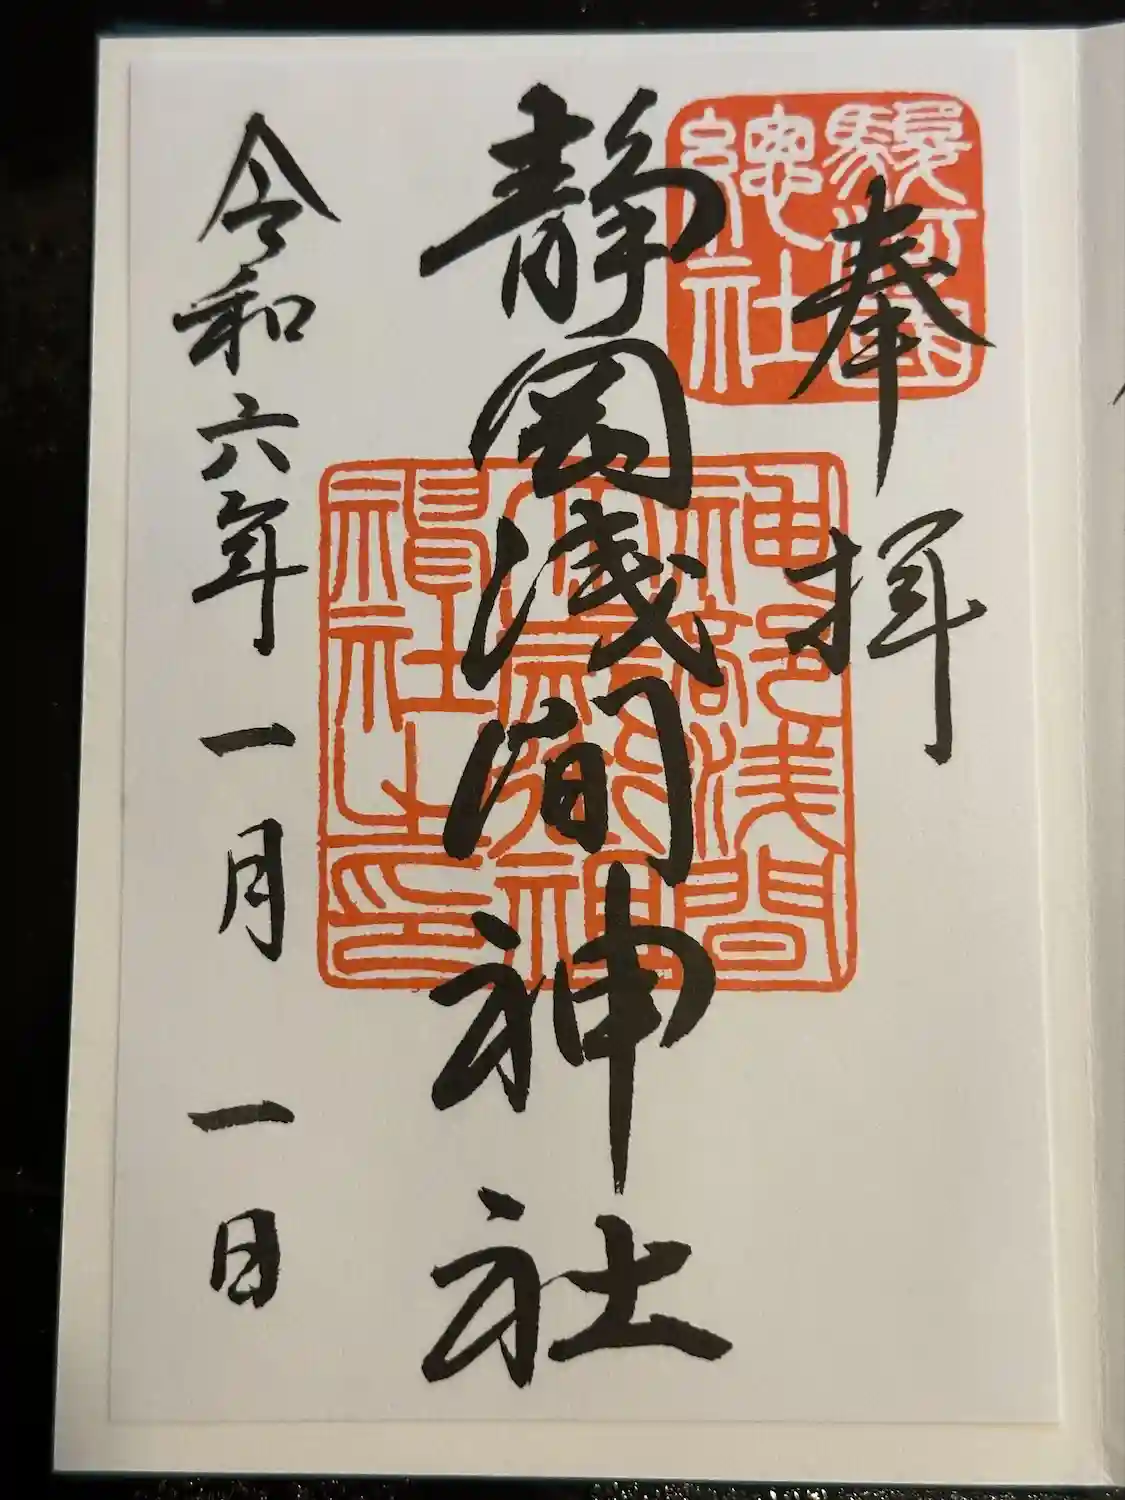 駿河國
總社
奉拝
神部浅間
社之印
静岡浅間神社
令和六年一月一日